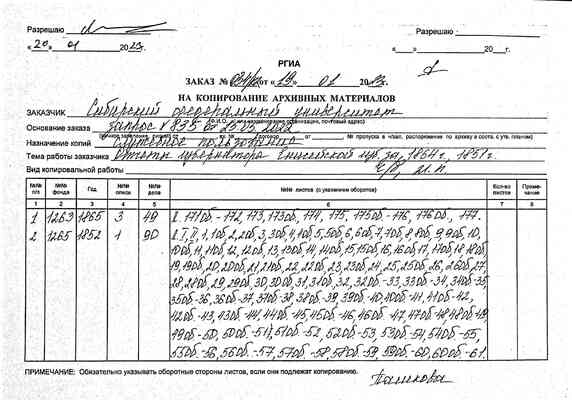 Разрешаю Разрешаю:
«20» 01 2023г. «___»______20___г.
РГИА
ЗАКАЗ № от «19» 01 2023г.
НА КОПИРОВАНИЕ АРХИВНЫХ МАТЕРИАЛОВ
ЗАКАЗЧИК Сибирский федеральный университет
Основание заказа запрос № 835 от 25.05.2022
Назначение копий Служебное пользование
Тема работы заказчика Отчеты губернатора Енисейской губ. за 1864г., 1851г.
Вид копировальной работы
№№ п/п №№ фонда Год №№ описи №№ дела №№ листов (с указанием оборотов) Кол-во листов Приме-чание
1 2 3 4 5 6 7 8
1 1263 1865 3 49 л. 171об.-172, 173, 173об. 174, 175, 175об.-176, 176об., 177.
2 1265 1852 1 90 л. I, II, 1, 1об, 2, 2об, 3, 3об, 4, 4об, 5, 5об, 6, 6об, 7, 7об, 8, 8об, 9, 9об, 10,
10об, 11, 11об, 12, 12об, 13, 13об, 14, 14об, 15, 15об, 16, 16об, 17, 17об, 18, 18об,
19, 19об, 20, 20об, 21, 21об, 22, 22об, 23, 23об, 24, 25, 25об, 26, 26об, 27,
28, 28об, 29, 29об, 30, 30об, 31, 31об, 32, 32об-33, 33об-34, 34об-35,
35об-36, 36об-37, 37об-38, 38об-39, 39об-40, 40об-41, 41об-42,
42об-43, 43об-44, 44об-45, 45об-46, 46об-47, 47об-48, 48об-49,
49об-50, 50об-51, 51об-52, 52об-53, 53об-54, 54об-55,
55об-56, 56об-57, 57об-58, 58об-59, 59об-60, 60об-61.
ПРИМЕЧАНИЕ: Обязательно указывать оборотные стороны листов, если они подлежат копированию.
Пашкова